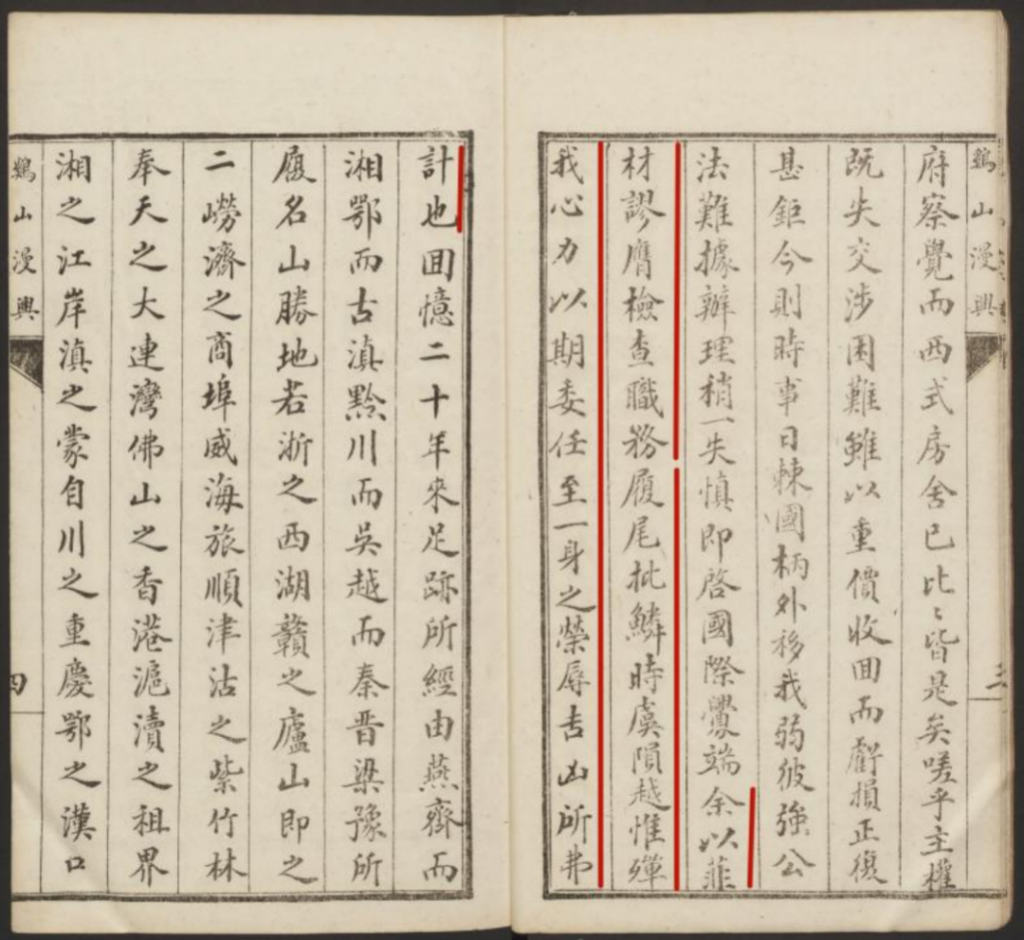 鷄山漫興
府察覺而西式房舍已比比皆是矣嗟乎主權
既失交涉困難雖以重價收囬而虧損正復
甚鉅今則時事日棘國柄外移我弱彼強公
法難據辦理稍一失慎即啓國際釁端余以菲
材謬膺檢查職務履尾批鱗時虞隕越惟殫
我心力以期委任至一身之榮辱吉凶所弗
計也囬憶二十年來足跡所經由燕齊而
湘鄂而古滇黔川而吳越而秦晋梁豫所
履名山勝地若浙之西湖贛之廬山即之
二嶗濟之商埠威海旅順津沽之紫竹林
奉天之大連灣佛山之香港滬瀆之租界
湘之江岸滇之蒙自川之重慶鄂之漢口
鷄山漫興
四